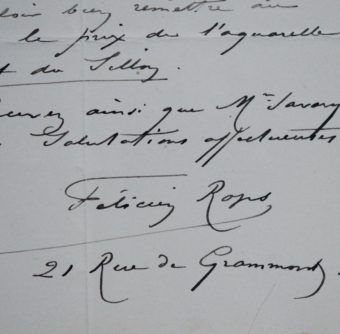 bien remettre au
le prix de l'aquarelle
du Sillon.
ainsi que Mr Savary
Salutations affectueuses
Félicien Rops
21 Rue de Grammont.